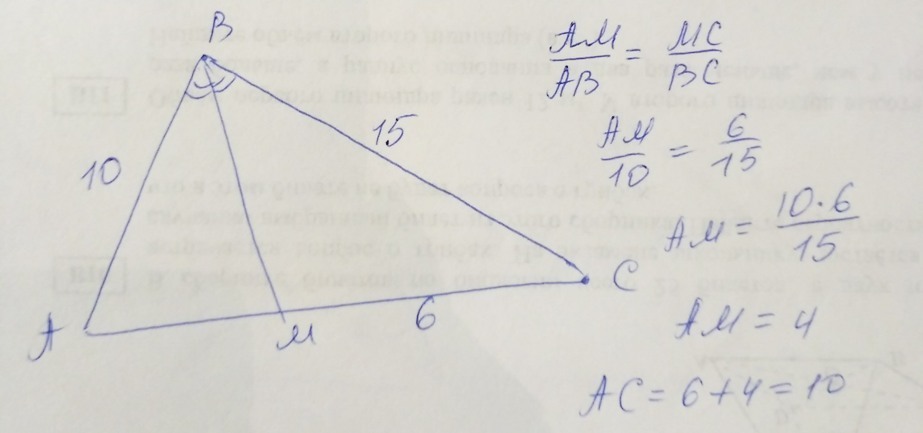 B
10
15
A
M
6
C
AM/AB = MC/BC
AM/10 = 6/15
AM = 10·6/15
AM = 4
AC = 6 + 4 = 10